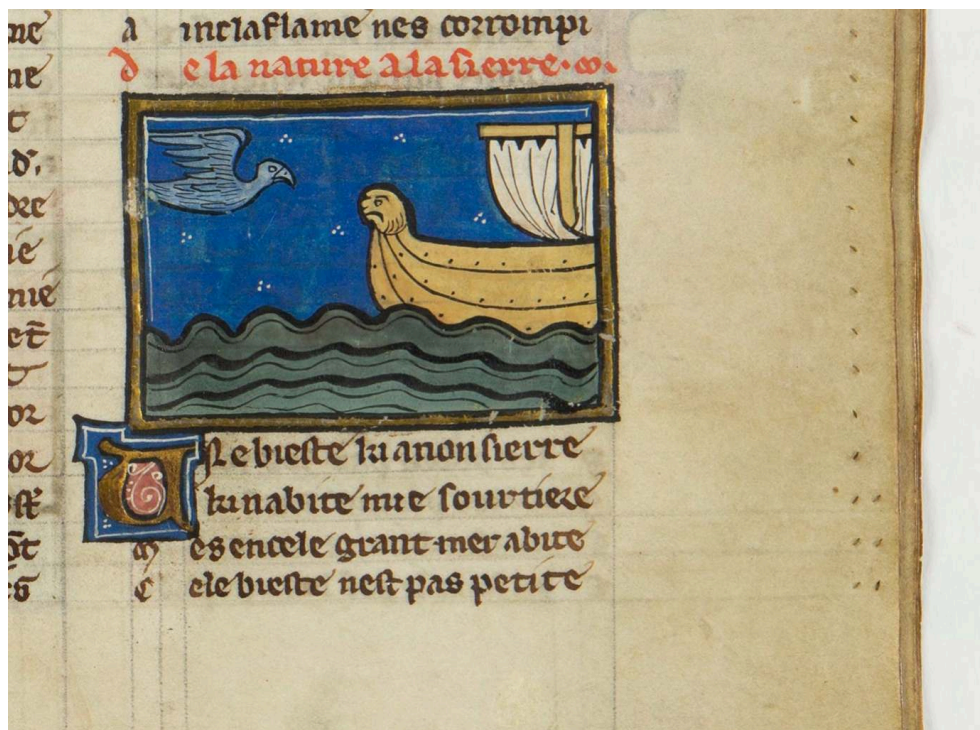 A int la flame nes corrompi
D e la nature a la sierre.
U Ne bieste ki a non sierre
ki nabite mie sour tiere
M es en cele grant mer abite
C ele bieste nest pas petite